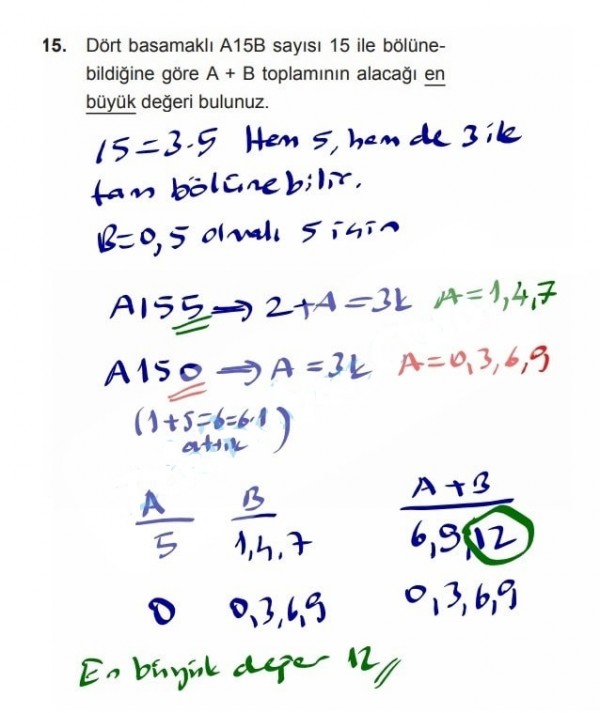 15. Dört basamaklı A15B sayısı 15 ile bölüne-
bildiğine göre A + B toplamının alacağı en
büyük değeri bulunuz.
15=3.5 Hem 5, hem de 3 ile
tam bölünebilir.
B=0,5 olmalı 5 için
A155 ⇒ 2+A=3k A=1,4,7
A150 ⇒ A=3k A=0,3,6,9
(1+5=6=6-1
attık)
A B A+B
5 1,4,7 6,9,12
0 0,3,6,9 0,3,6,9
En büyük değer 12//